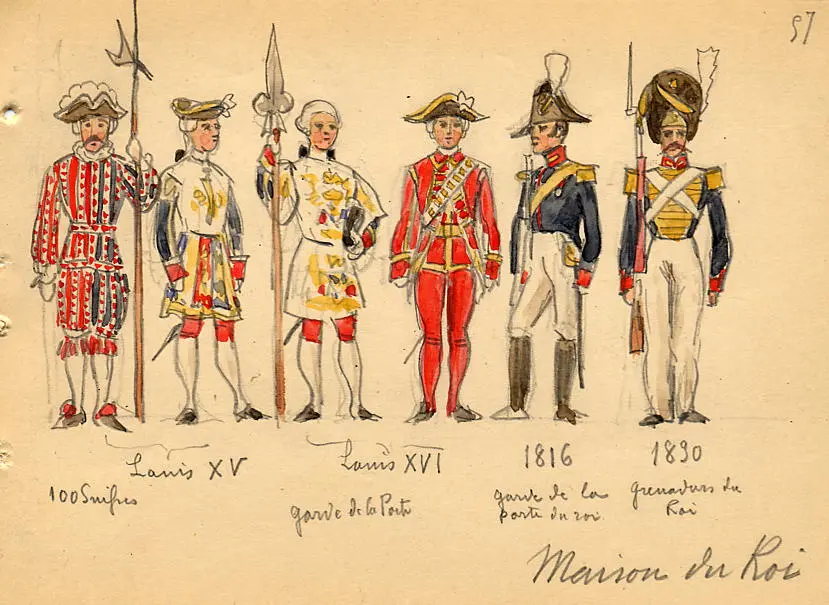 97
Louis XV
Louis XVI
1816
1830
100 Suisses
garde de la Porte
garde de la
porte du roi
grenadiers du
Roi
Maison du Roi